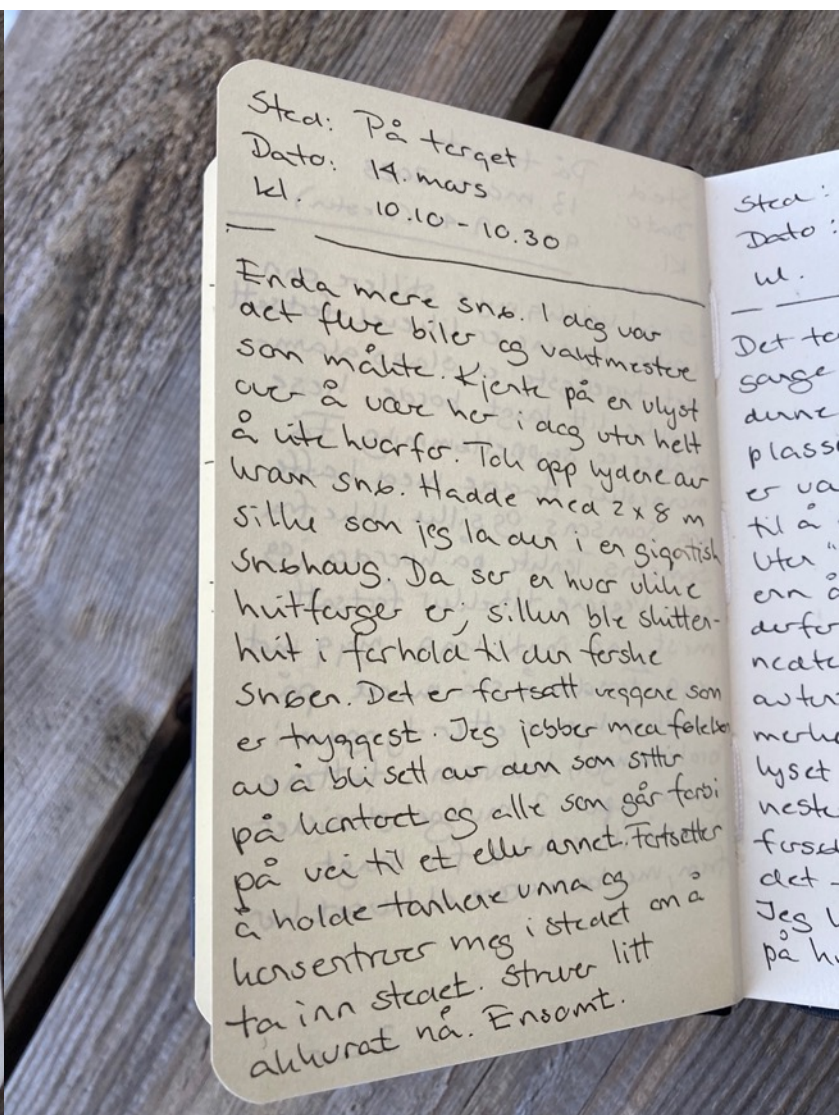 Sted: På torget
Dato: 14. mars
kl. 10.10 - 10.30
Enda mere snø. I dag var
det flere biler og vaktmestere
som måkte. Kjente på en ulyst
over å være her i dag uten helt
å vite hvorfor. Tok opp lydene av
kram snø. Hadde med 2 x 8 m
silke som jeg la den i en gigatisk
snøhaug. Da ser en hvor ulike
hvitfarger er, silken ble skitten-
hvit i forhold til den ferske
snøen. Det er fortsatt veggene som
er tryggest. Jeg jobber med følelsen
av å bli sett av dem som sitter
på kontoret og alle som går forbi
på vei til et eller annet. Fortsetter
å holde tankene unna og
konsentrerer meg i stedet om å
ta inn stedet. Strever litt
akkurat nå. Ensomt.
Sted:
Dato:
kl.
Det
sange
denne
er
til å
uten
enn
lyset
det -
Jeg
på